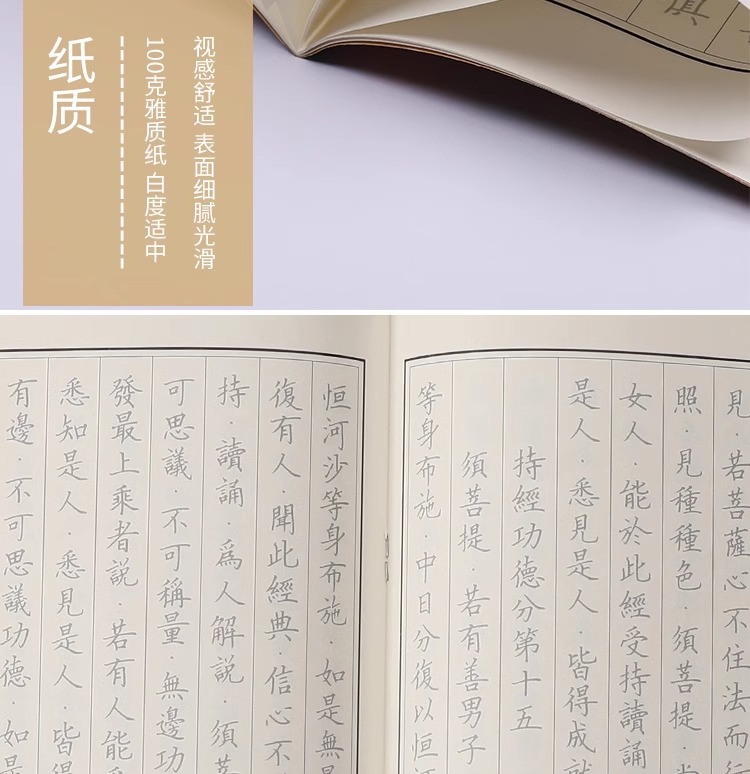 纸质
视感舒适 表面细腻光滑
100克雅质纸 白度适中
眞
見．若菩薩心不住法而行
照．見種種色．須菩提．
女人．能於此經受持讀誦
是人．悉見是人．皆得成就
持經功德分第十五
須菩提．若有善男子
等身布施．中日分復以恒河
恒河沙等身布施．如是無
復有人．聞此經典．信心不
持．讀誦．爲人解說．須菩
可思議．不可稱量．無邊功
發最上乘者說．若有人能受
悉知是人．悉見是人．皆得
有邊．不可思議功德．如是